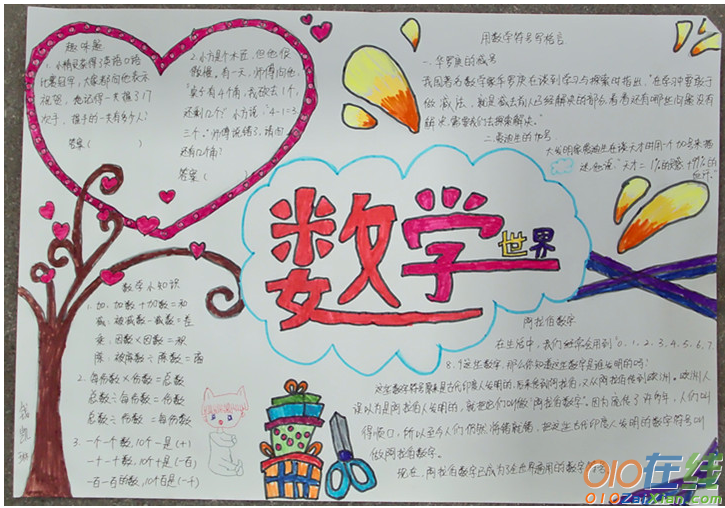 趣味题
2.小方是个木匠,但他很
傲慢,有一天,师傅问他:
桌子有4个角,我砍去1个,
还剩几个?小方说:"4-1=3
三个。"师傅说错了,请问
还有几个角?
答案( )
比赛冠军,大家都向他表示
祝贺,她记得一共握了17
次手,握手的一共有多少人?
答案( )
用数学符号写格言
一.华罗庚的减号
我国著名数学家华罗庚在谈到学习与探索时指出:"在学习中要敢于
做减法,就是减去前人已经解决的部分,看看还有哪些问题没有
解决,需要我们去探索解决。"
二.爱迪生的加号
大发明家爱迪生在谈天才时用一个加号来描
述,他说:"天才=1%的灵感+99%的
血汗。"
数学世界
数学小知识
1.加:加数+加数=和
减:被减数-减数=差
乘:因数×因数=积
除:被除数÷除数=商
2.每份数×份数=总数
总数÷每份数=份数
总数÷份数=每份数
3.一个一个数,10个一是(十)
一十一十数,10个十是(一百)
一百一百的数,10个百是(一千)
阿拉伯数字
在生活中,我们经常会用到"0、1、2、3、4、5、6、7、
8、9这些数字,那么你知道这些数字是谁发明的吗?
这些数字符号原来是古代印度人发明的,后来传到阿拉伯,又从阿拉伯传到欧洲。欧洲人
误以为是阿拉伯人发明的,就把它们叫做"阿拉伯数字"。因为流传了许多年,人们叫
得顺口,所以至今人们仍然将错就错,把这些古代印度人发明的数字符号叫
做阿拉伯数字。
现在,阿拉伯数字已成为了全世界通用的数字符号。
010在线
010ZaiXian.com